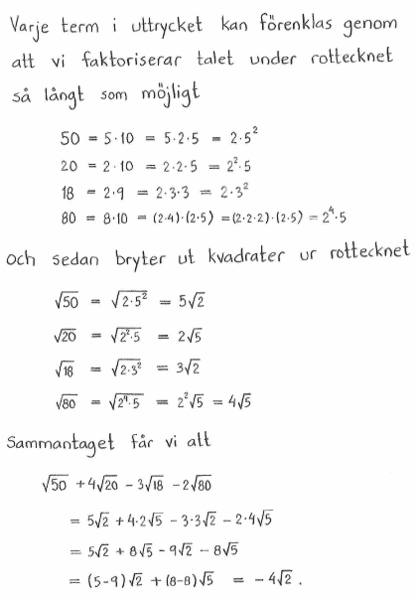 Varje term i uttrycket kan förenklas genom
att vi faktoriserar talet under rottecknet
så långt som möjligt
50 = 5·10 = 5·2·5 = 2·5²
20 = 2·10 = 2·2·5 = 2²·5
18 = 2·9 = 2·3·3 = 2·3²
80 = 8·10 = (2·4)·(2·5) = (2·2·2)·(2·5) = 2⁴·5
och sedan bryter ut kvadrater ur rottecknet
√50 = √(2·5²) = 5√2
√20 = √(2²·5) = 2√5
√18 = √(2·3²) = 3√2
√80 = √(2⁴·5) = 2²√5 = 4√5
Sammantaget får vi att
√50 + 4√20 − 3√18 − 2√80
= 5√2 + 4·2√5 − 3·3√2 − 2·4√5
= 5√2 + 8√5 − 9√2 − 8√5
= (5−9)√2 + (8−8)√5 = −4√2 .